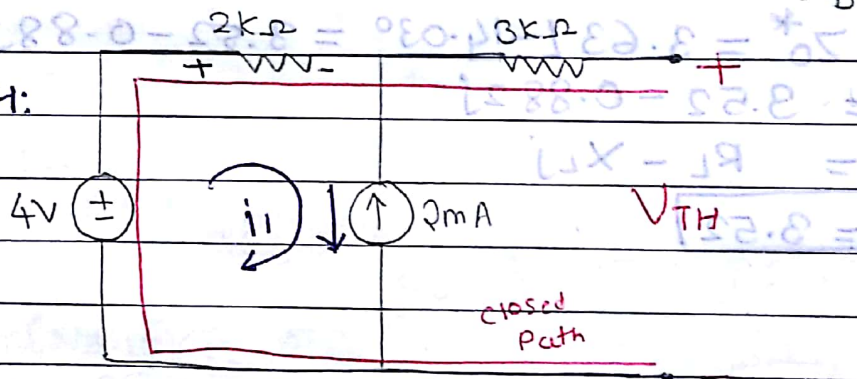 2KΩ 3KΩ
+ - +
H:
4V ± i1 ↑ 2mA VTH
closed
Path